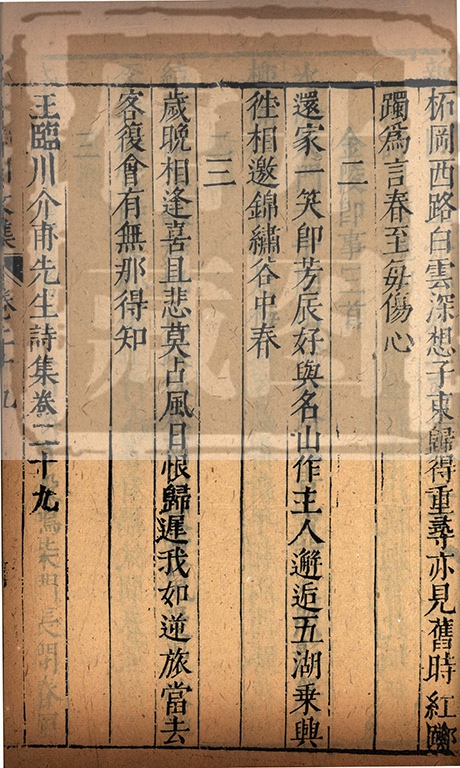 柘岡西路白雲深想子東歸得重尋亦見舊時紅躑
躅爲言春至每傷心
二
還家一笑即芳辰好與名山作主人邂逅五湖乗興
徃相邀錦繡谷中春
三
歲晚相逢喜且悲莫占風日恨歸遲我如逆旅當去
客復會有無那得知
王臨川介甫先生詩集卷二十九
文集 卷二十九